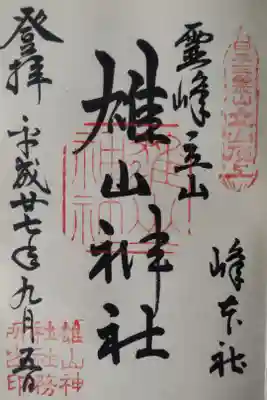 霊峰立山
峰本社
雄山神社
登拝
平成廿七年九月五日
雄山神
社社務
所之印